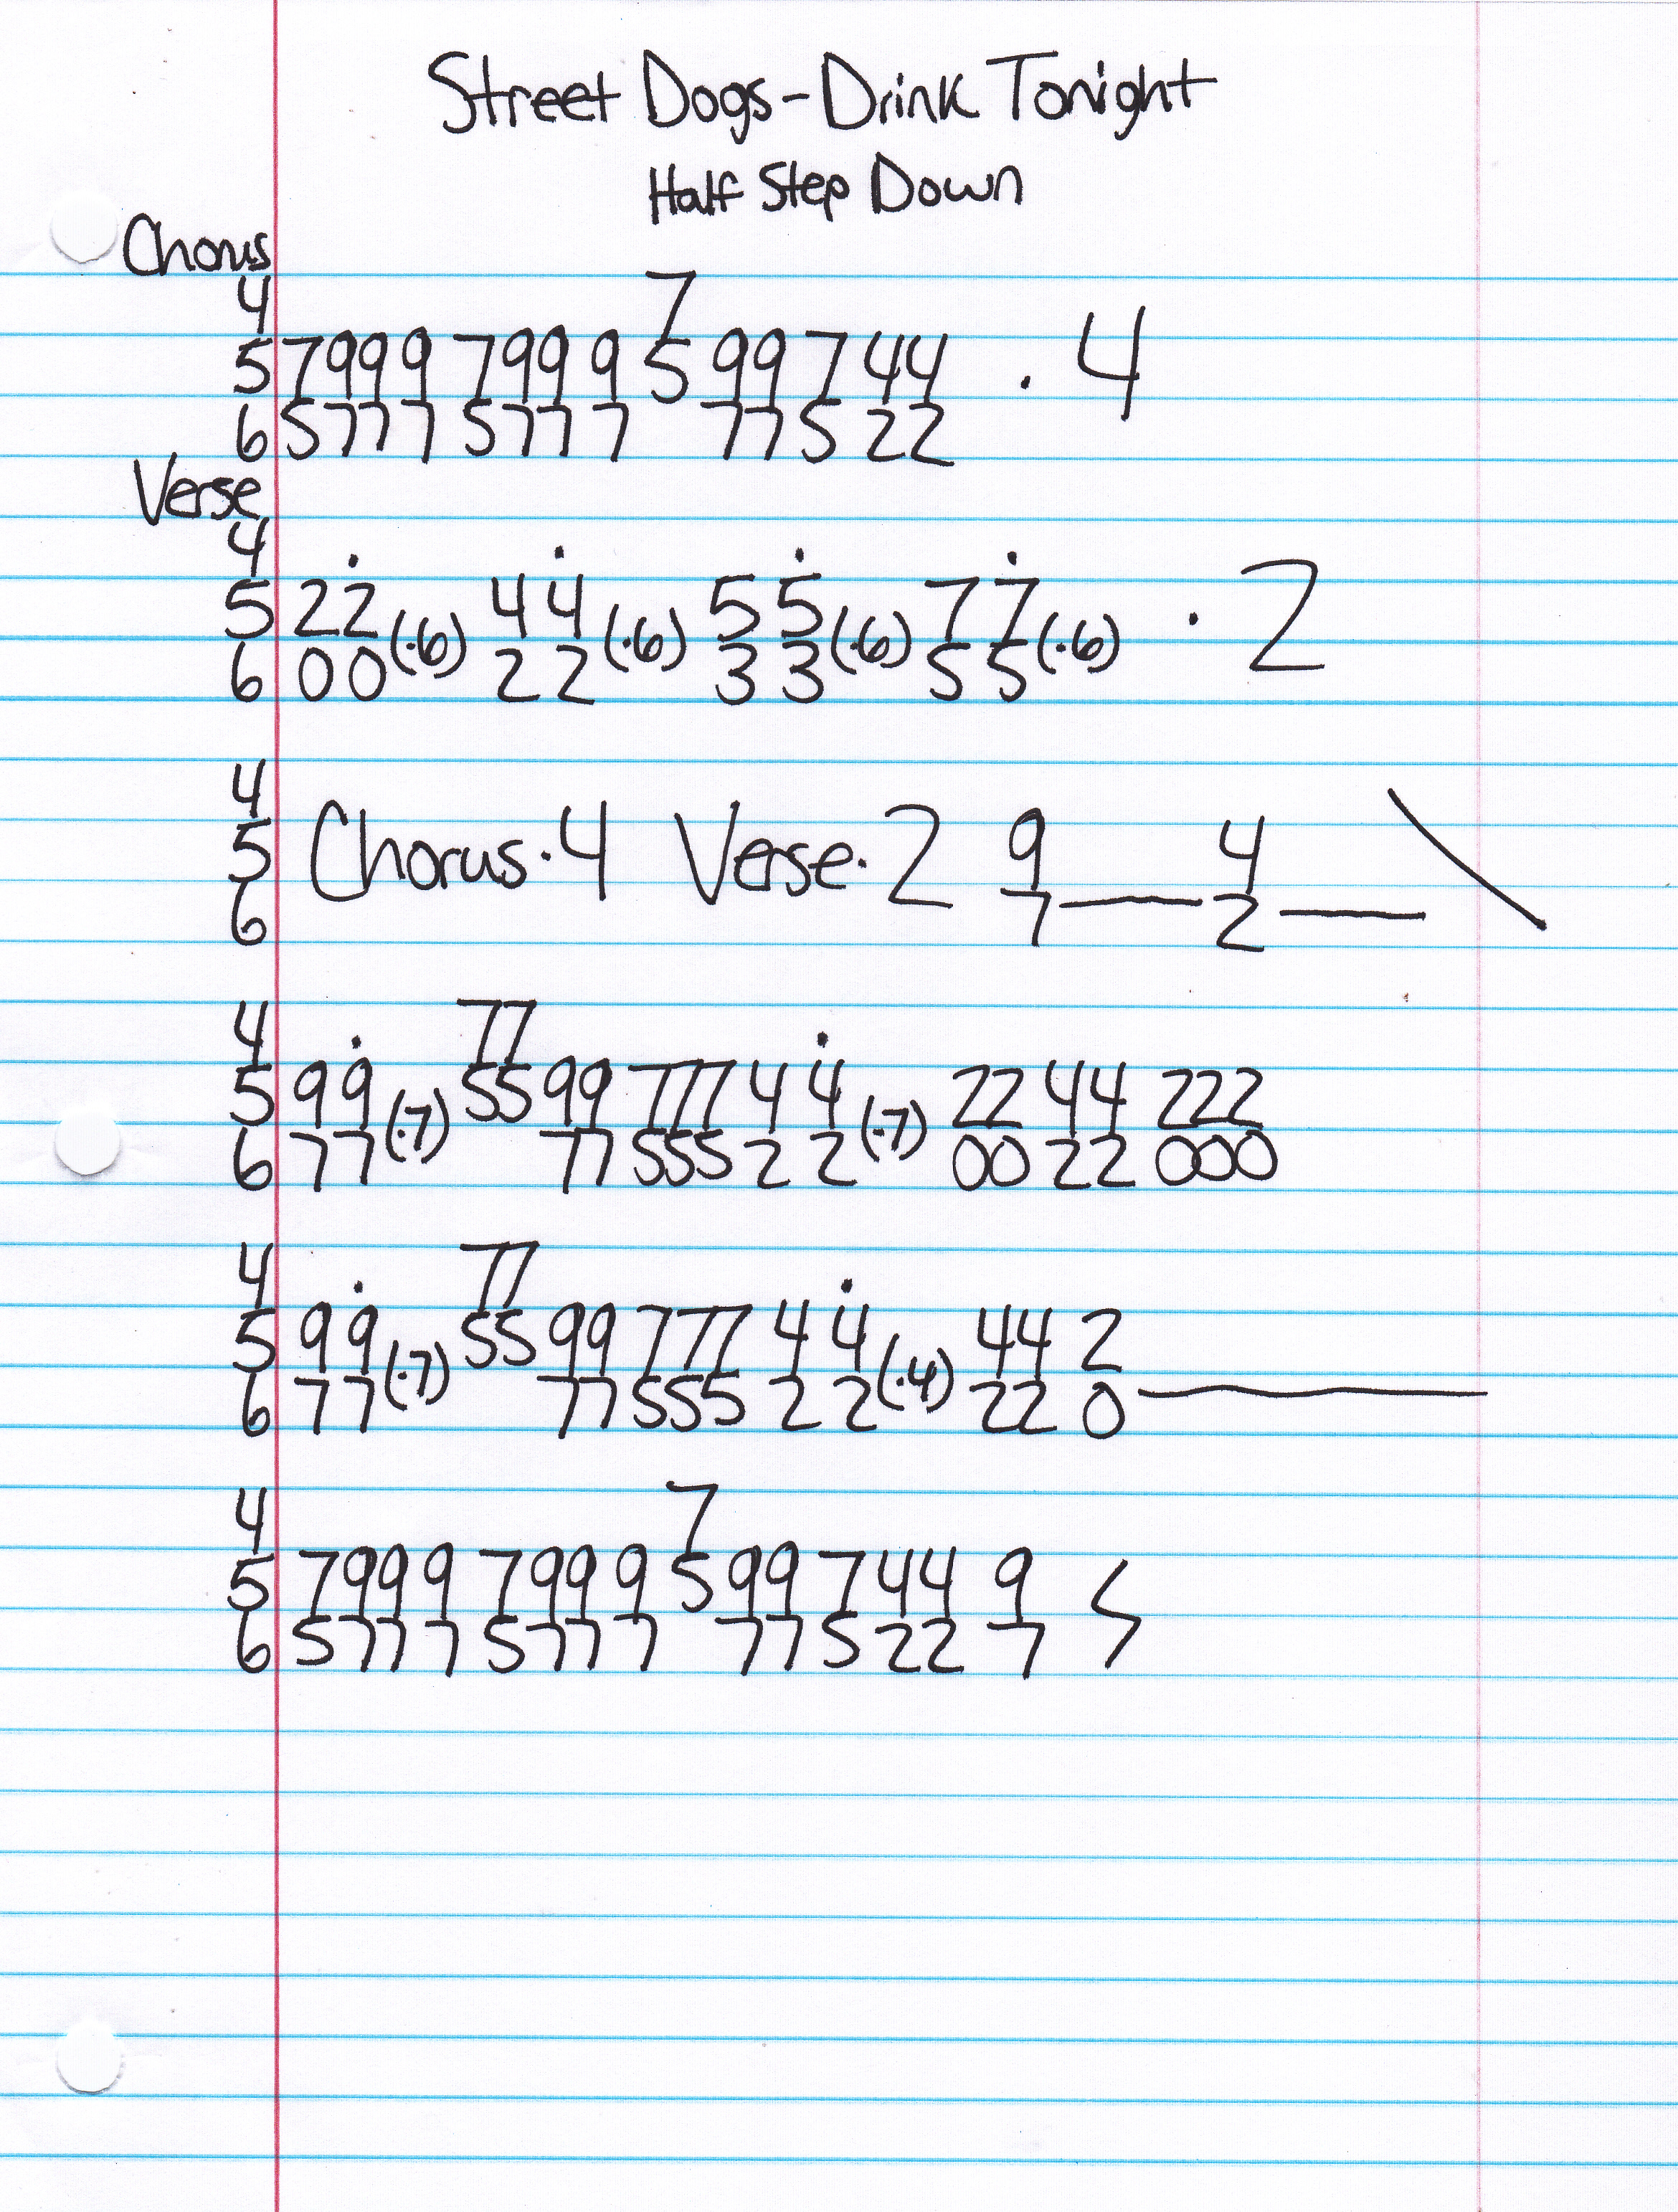 Street Dogs - Drink Tonight
Half Step Down
Chorus
4 7
5 7999 7999 5 99 7 44 · 4
6 5777 5777 77 5 22
Verse
4
5 22 (·6) 44 (·6) 55 (·6) 77 (·6) · 2
6 00 22 33 55
4
5 Chorus · 4 Verse · 2 9 4 \
6 7 ___ 2 ___
4 77
5 99 (·7) 55 99 777 44 (·7) 22 44 222
6 77 77 555 22 00 22 000
4 77
5 99 (·7) 55 99 777 44 (·4) 44 2
6 77 77 555 22 22 0 ______
4 7
5 7999 7999 5 99 7 44 9
6 5777 5777 77 5 22 7